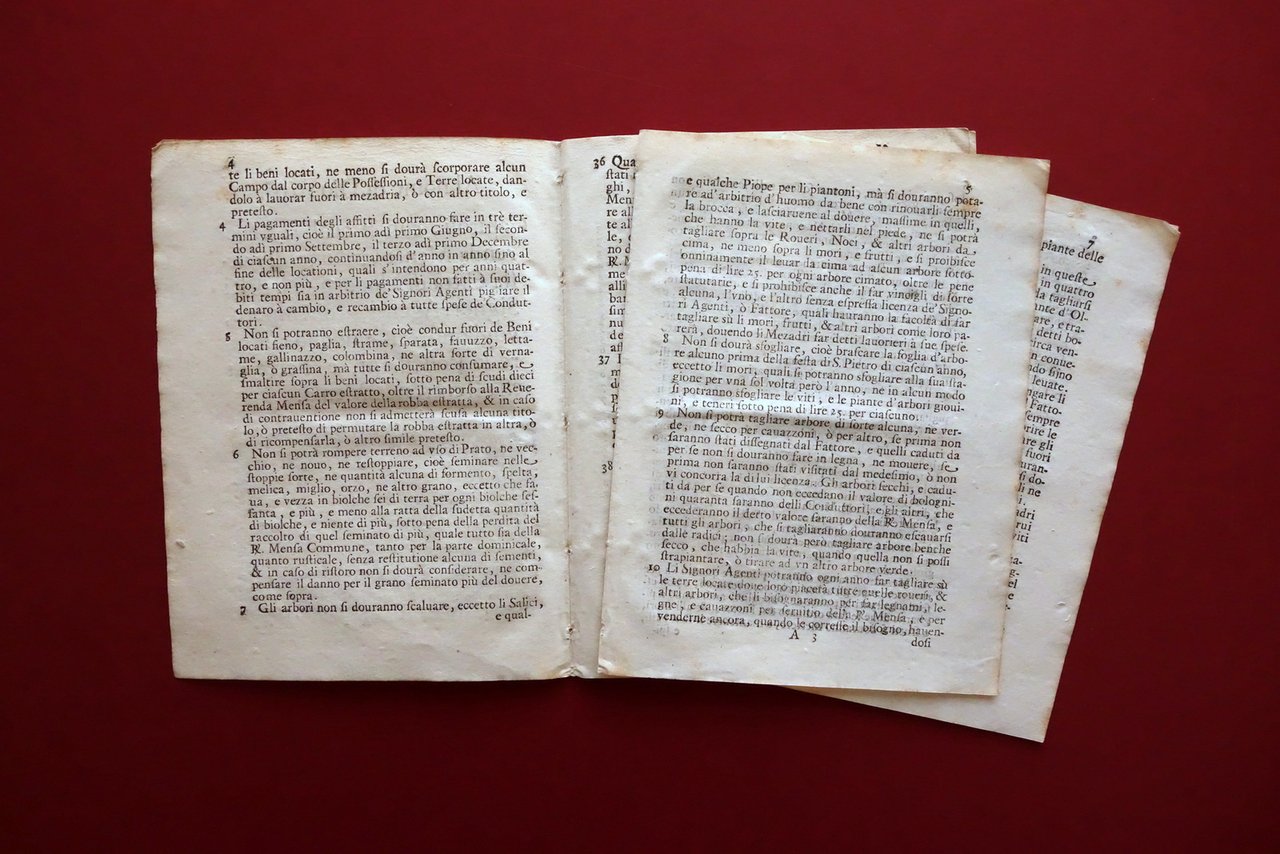 4
te li beni locati, ne meno si dourà scorporare alcun
Campo dal corpo delle Possessioni, e Terre locate, dan-
dolo à lauorar fuori à mezadria, ò con altro titolo, e
pretesto.
4 Li pagamenti degli affitti si douranno fare in trè ter-
mini vguali, cioè il primo adì primo Giugno, il secon-
do adì primo Settembre, il terzo adì primo Decembre
di ciascun anno, continuandosi d'anno in anno sino al
fine delle locationi, quali s'intendono per anni quat-
tro, e non più, e per li pagamenti non fatti à suoi de-
biti tempi sia in arbitrio de'Signori Agenti pigliare il
denaro à cambio, e recambio à tutte spese de Condut-
tori.
5 Non si potranno estraere, cioè condur fuori de Beni
locati fieno, paglia, strame, sparata, fauuzzo, letta-
me, gallinazzo, colombina, ne altra sorte di verna-
glia, ò grassina, mà tutte si douranno consumare, e
smaltire sopra li beni locati, sotto pena di scudi dieci
per ciascun Carro estratto, oltre il rimborso alla Reue-
renda Mensa del valore della robba estratta, & in caso
di contrauentione non si admetterà scusa alcuna tito-
lo, ò pretesto di permutare la robba estratta in altra, ò
di ricompensarla, ò altro simile pretesto.
6 Non si potrà rompere terreno ad vso di Prato, ne vec-
chio, ne nouo, ne restoppiare, cioè seminare nelle
stoppie sorte, ne quantità alcuna di formento, spelta,
melica, miglio, orzo, ne altro grano, eccetto che fa-
ua, e vezza in biolche sei di terra per ogni biolche ses-
santa, e più, e meno alla ratta della sudetta quantità
di biolche, e niente di più, sotto pena della perdita del
raccolto di quel seminato di più, quale tutto sia della
R. Mensa Commune, tanto per la parte dominicale,
quanto rusticale, senza restitutione alcuna di sementi,
& in caso di ristoro non si dourà considerare, ne com-
pensare il danno per il grano seminato più del douere,
come sopra.
7 Gli arbori non si douranno scaluare, eccetto li Salici,
e qual-
36 Qua
stati
ghi,
Men
re al
te al
le, e
no d
R. M
alli
bar
sim
nu
de
aff
37
38
5
e qualche Piope per li piantoni, mà si douranno pota-
re ad'arbitrio d'huomo da bene con rinouarli sempre
la brocca, e lasciaruene al douere, massime in quelli,
che hanno la vite, e nettarli nel piede, ne si potrà
tagliare sopra le Roueri, Noci, & altri arbori da
cima, ne meno sopra li mori, e frutti, e si proibisce
onninamente il leuar la cima ad alcun arbore sotto
pena di lire 25. per ogni arbore cimato, oltre le pene
statutarie, e si prohibisce anche il far vincigli di sorte
alcuna, l'vno, e l'altro senza espressa licenza de'Signo-
ri Agenti, ò Fattore, quali hauranno la facoltà di far
tagliare sù li mori, frutti, & altri arbori come loro pa-
rerà, douendo li Mezadri far detti lauorieri à sue spese.
8 Non si dourà sfogliare, cioè brascare la foglia d'arbo-
re alcuno prima della festa di S. Pietro di ciascun'anno,
eccetto li mori, quali si potranno sfogliare alla sua sta-
gione per vna sol volta però l'anno, ne in alcun modo
si potranno sfogliare le viti, e le piante d'arbori gioui-
ni, e teneri sotto pena di lire 25. per ciascuno.
9 Non si potrà tagliare arbore di sorte alcuna, ne ver-
de, ne secco per cauazzoni, ò per altro, se prima non
saranno stati dissegnati dal Fattore, e quelli caduti da
per se non si douranno fare in legna, ne mouere, se
prima non saranno stati visitati dal medesimo, ò non
vi concorra la di lui licenza. Gli arbori secchi, e cadu-
ti da per se quando non eccedano il valore di bologni-
ni quaranta saranno delli Conduttori, e gli altri, che
eccederanno il detto valore saranno della R. Mensa, e
tutti gli arbori, che si tagliaranno douranno escauarsi
dalle radici; non si dourà però tagliare arbore benche
secco, che habbia la vite, quando quella non si possi
strapiantare, ò tirare ad vn altro arbore verde.
10 Li Signori Agenti potranno ogni anno far tagliare sù
le terre locate doue loro piacerà tutte quelle roueri, &
altri arbori, che li bisognaranno per far legnami, le-
gne, e cauazzoni per seruitio della R. Mensa, e per
venderne ancora, quando le corresse il bisogno, hauen-
A 3
dosi
7
piante delle
in queste
in quattro
la tagliarsi
ante d'Ol-
re, e tra-
detti bo-
irca ven-
n conue-
ndo sino
leuate.
ngare li
Fatto-
sempre
prire le
are gli
ouran-
si do-
li ne
ri.
adri
rui
viti